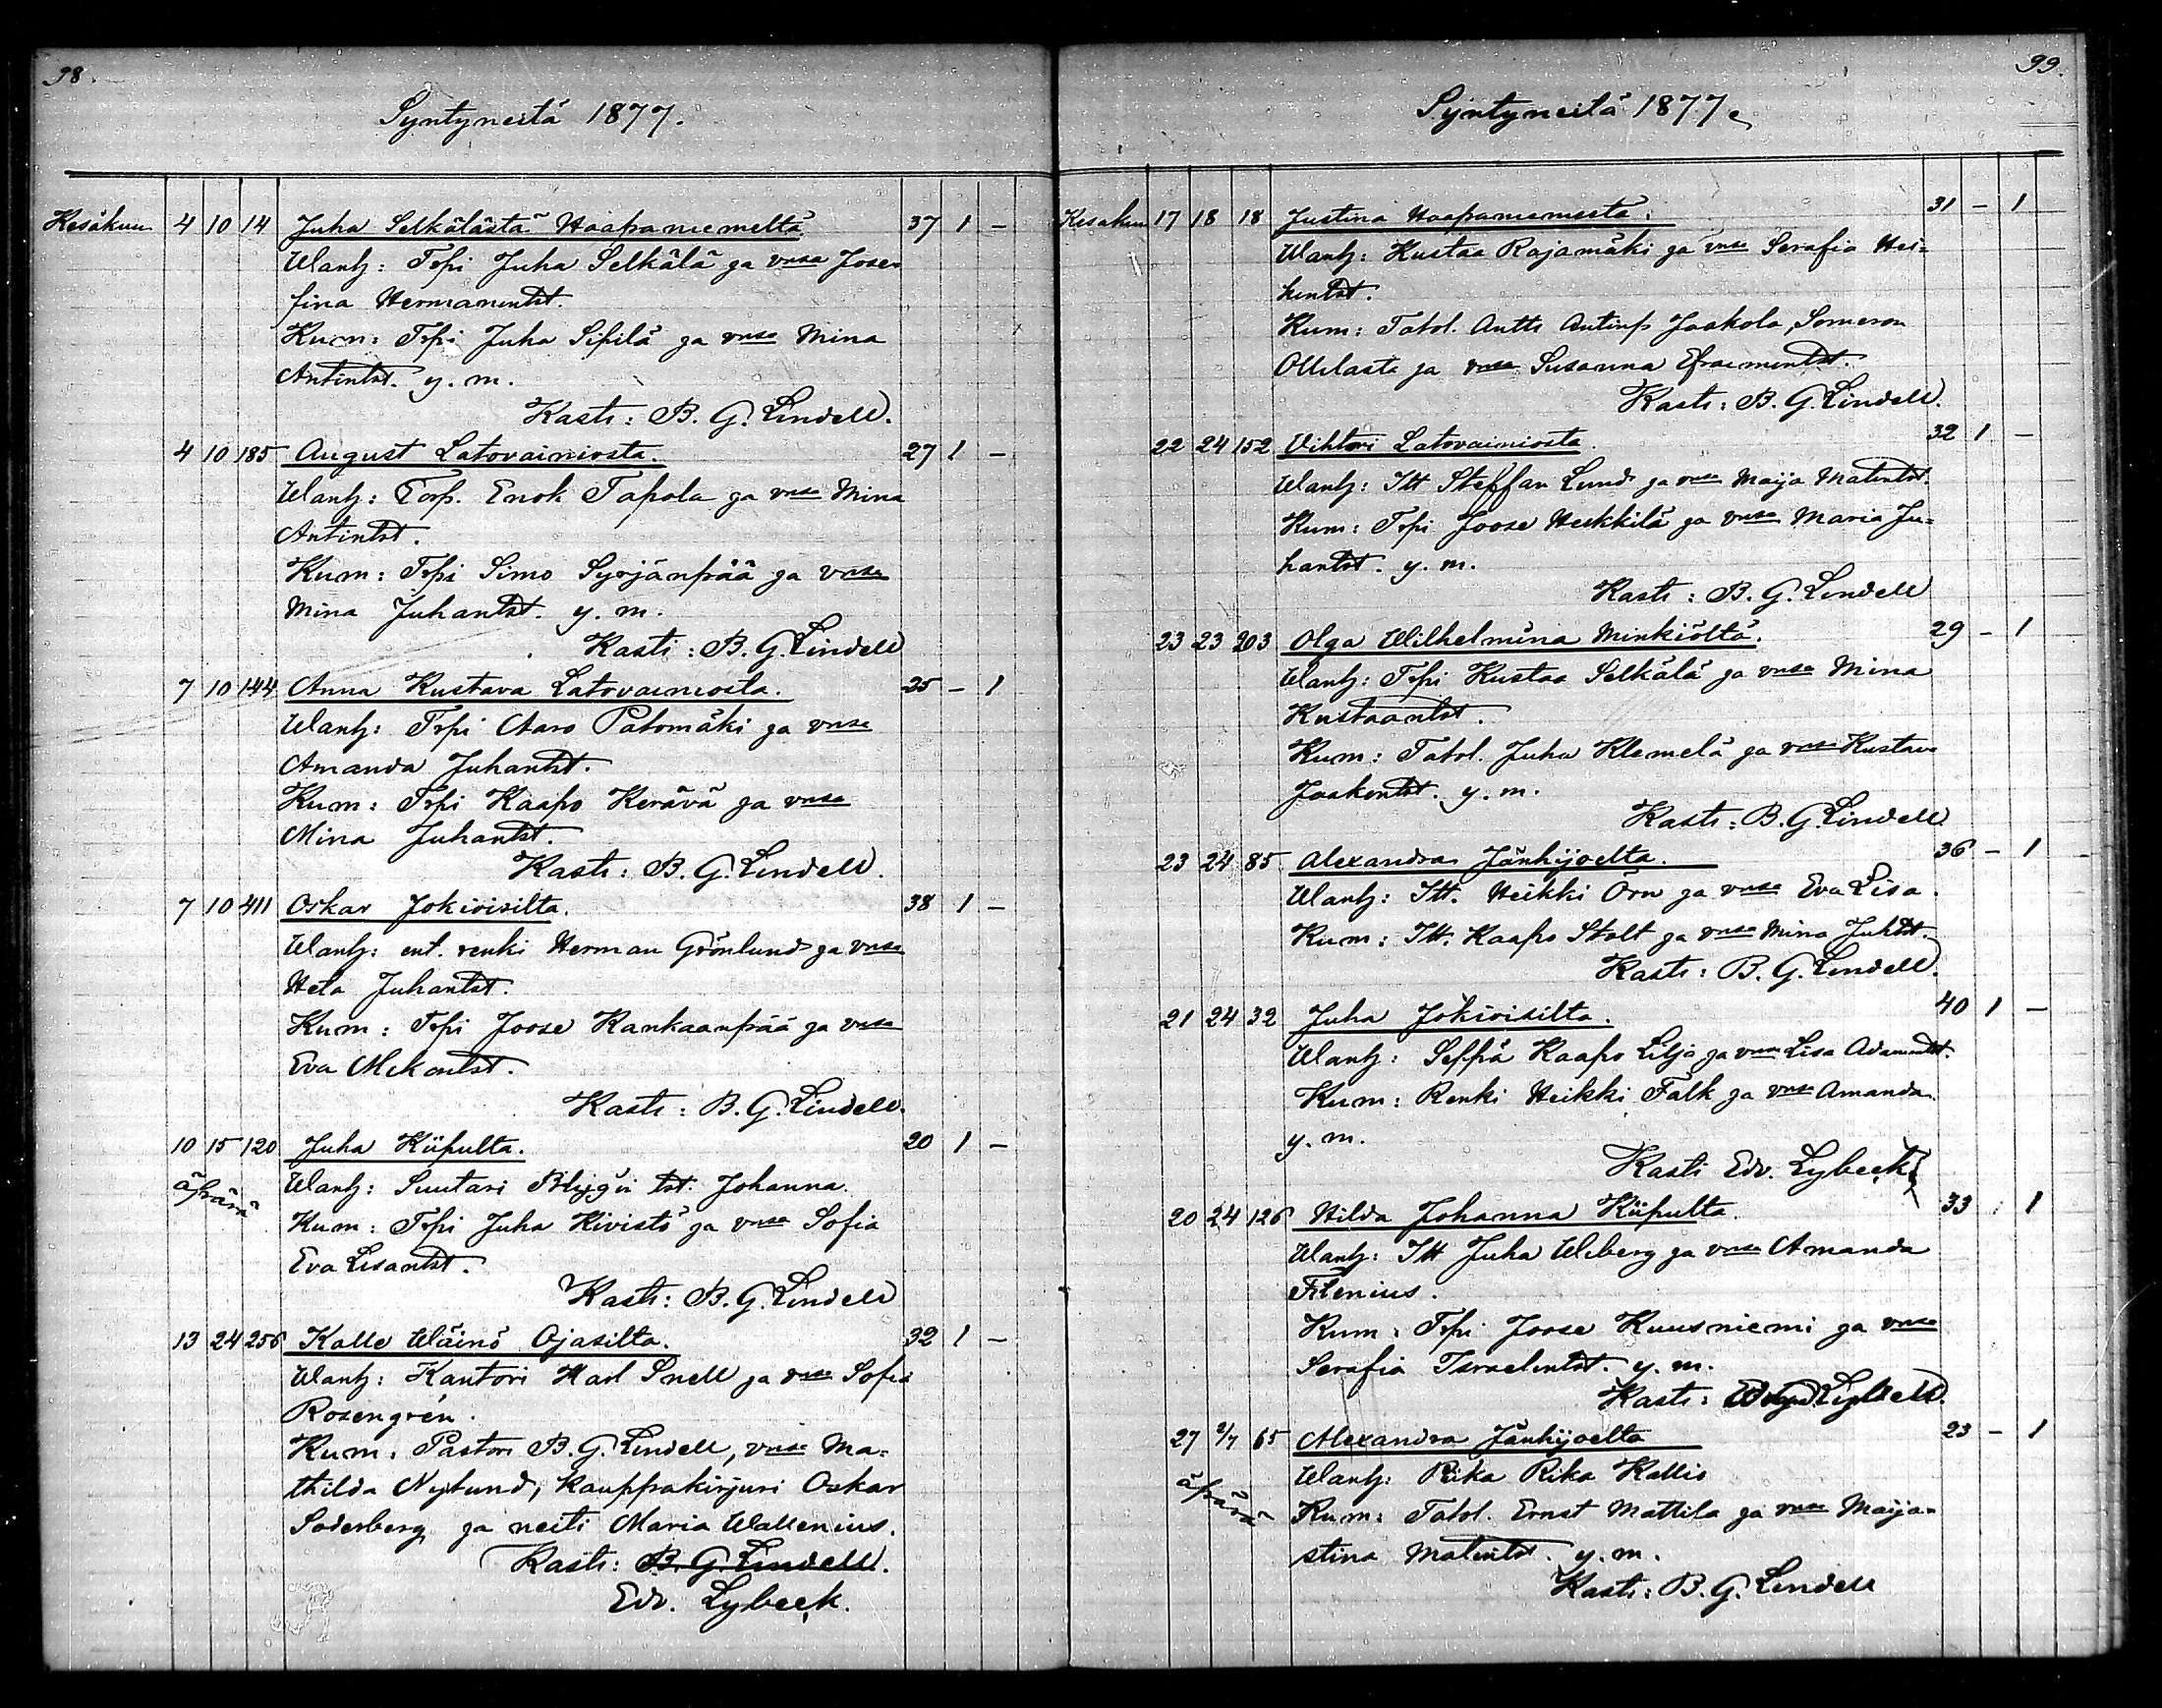 98.
Syntyneitä 1877.
Kesäkuu 4 10 14 Juha Selkälästä Haapaniemeltä 37 1 –
Wanh: Trpi Juha Selkälä ja vnsa Jose-
fina Hermanintst.
Kum: Trpi Juha Sipilä ja vnsa Mina
Antintst. y. m.
Kasti: B. G. Lindell.
4 10 185 August Latovainiosta. 27 1 –
Wanh: Torp. Enok Tapola ja vnsa Mina
Antintst.
Kum: Trpi Simo Syrjänpää ja vnsa
Mina Juhantst. y. m.
Kasti: B. G. Lindell
7 10 144 Anna Kustava Latovainiosta. 25 – 1
Wanh: Trpi Aaro Patomäki ja vnsa
Amanda Juhantst.
Kum: Trpi Kaapo Kerävä ja vnsa
Mina Juhantst.
Kasti: B. G. Lindell.
7 10 411 Oskar Jokioisilta. 38 1 –
Wanh: ent. renki Herman Grönlund ja vnsa
Heta Juhantst.
Kum: Trpi Joose Kankaanpää ja vnsa
Eva Mikontst.
Kasti: B. G. Lindell.
10 15 120 Juha Kiipulta. 20 1 –
äpärä Wanh: Suutari Blygin tst. Johanna.
Kum: Trpi Juha Kivistö ja vnsa Sofia
Eva Lisantst.
Kasti: B. G. Lindell
13 24 256 Kalle Wäinö Ojasilta. 32 1 –
Wanh: Kantori Karl Snell ja vnsa Sofia
Rosengrén.
Kum: Pastori B. G. Lindell, vnsa Ma-
thilda Nylund, kauppakirjuri Oskar
Söderberg ja neiti Maria Wallenius.
Kasti: B. G. Lindell.
Edv. Lybeck.
99.
Syntyneitä 1877.
Kesäkuu 17 18 18 Justina Haapaniemestä. 31 – 1
Wanh: Kustaa Rajamäki ja vnsa Serafia Hei-
kintst.
Kum: Tatol. Antti Antinp Jaakola, Someron
Ollilasta ja vnsa Susanna Efraimintst.
Kasti: B. G. Lindell.
22 24 152 Vihtori Latovainiosta. 32 1 –
Wanh: Itt Steffan Lund ja vnsa Maija Matintst.
Kum: Trpi Joose Heikkilä ja vnsa Maria Ju-
hantst. y. m.
Kasti: B. G. Lindell
23 23 203 Olga Wilhelmina Minkiöltä. 29 – 1
Wanh: Trpi Kustaa Selkälä ja vnsa Mina
Kustaantst.
Kum: Tatol. Juha Klemelä ja vnsa Kustava
Jaakontst. y. m.
Kasti: B. G. Lindell
23 24 85 Alexandra Jänhijoelta. 36 – 1
Wanh: Itt. Heikki Örn ja vnsa Eva Lisa.
Kum: Itt. Kaapo Stolt ja vnsa Mina Juhtst.
Kasti: B. G. Lindell.
21 24 32 Juha Jokioisilta. 40 1 –
Wanh: Seppä Kaapo Lilja ja vnsa Lisa Adamintst.
Kum: Renki Heikki Falk ja vnsa Amanda
y. m.
Kasti Edv. Lybeck
20 24 126 Hilda Johanna Kiipulta. 33 1
Wanh: Itt Juha Wiberg ja vnsa Amanda
Filenius.
Kum: Trpi Joose Kuusniemi ja vnsa
Serafia Israelintst. y. m.
Kasti:
27 2/7 65 Alexandra Jänhijoelta 23 – 1
äpärä Wanh: Piika Rika Kallio
Kum: Tatol. Ernst Mattila ja vnsa Maija-
stina Matintst. y. m.
Kasti: B. G. Lindell